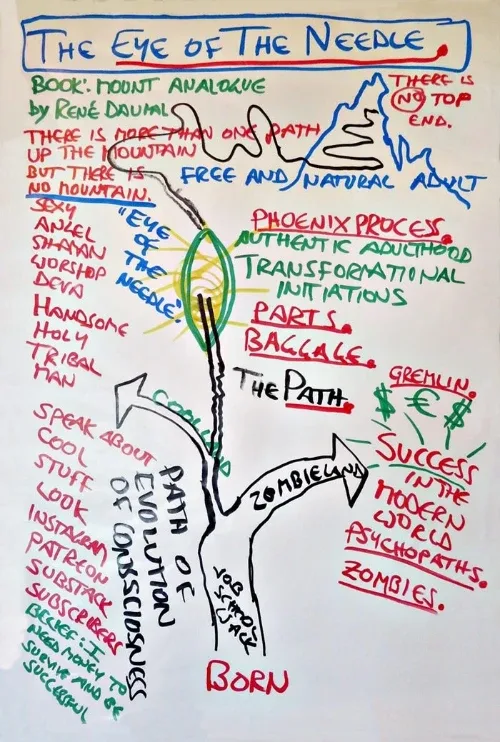 THE EYE OF THE NEEDLE.
BOOK: MOUNT ANALOGUE
by RENÉ DAUMAL
THERE IS MORE THAN ONE PATH
UP THE MOUNTAIN
BUT THERE IS
NO MOUNTAIN.
THERE IS
NO TOP
END.
FREE AND NATURAL ADULT
SEXY
ANGEL
SHAMAN
WORSHOP
DEVA
HANDSOME
HOLY
TRIBAL
MAN
"EYE
OF
THE
NEEDLE".
PHOENIX PROCESS.
AUTHENTIC ADULTHOOD
TRANSFORMATIONAL
INITIATIONS
PARTS.
BAGGAGE.
THE PATH.
GREMLIN.
$ € $
SUCCESS
IN THE
MODERN
WORLD
PSYCHOPATHS.
ZOMBIES.
ZOMBIELAND
SPEAK ABOUT
COOL
STUFF
LOOK
INSTAGRAM
PATREON
SUBSTACK
SUBSCRIBERS
BELIEF: I
NEED MONEY TO
SURVIVE AND BE
SUCCERFUL
PATH OF
EVOLUTION
OF CONSSCIOSNESS
JOB
SCHOOL
BORN